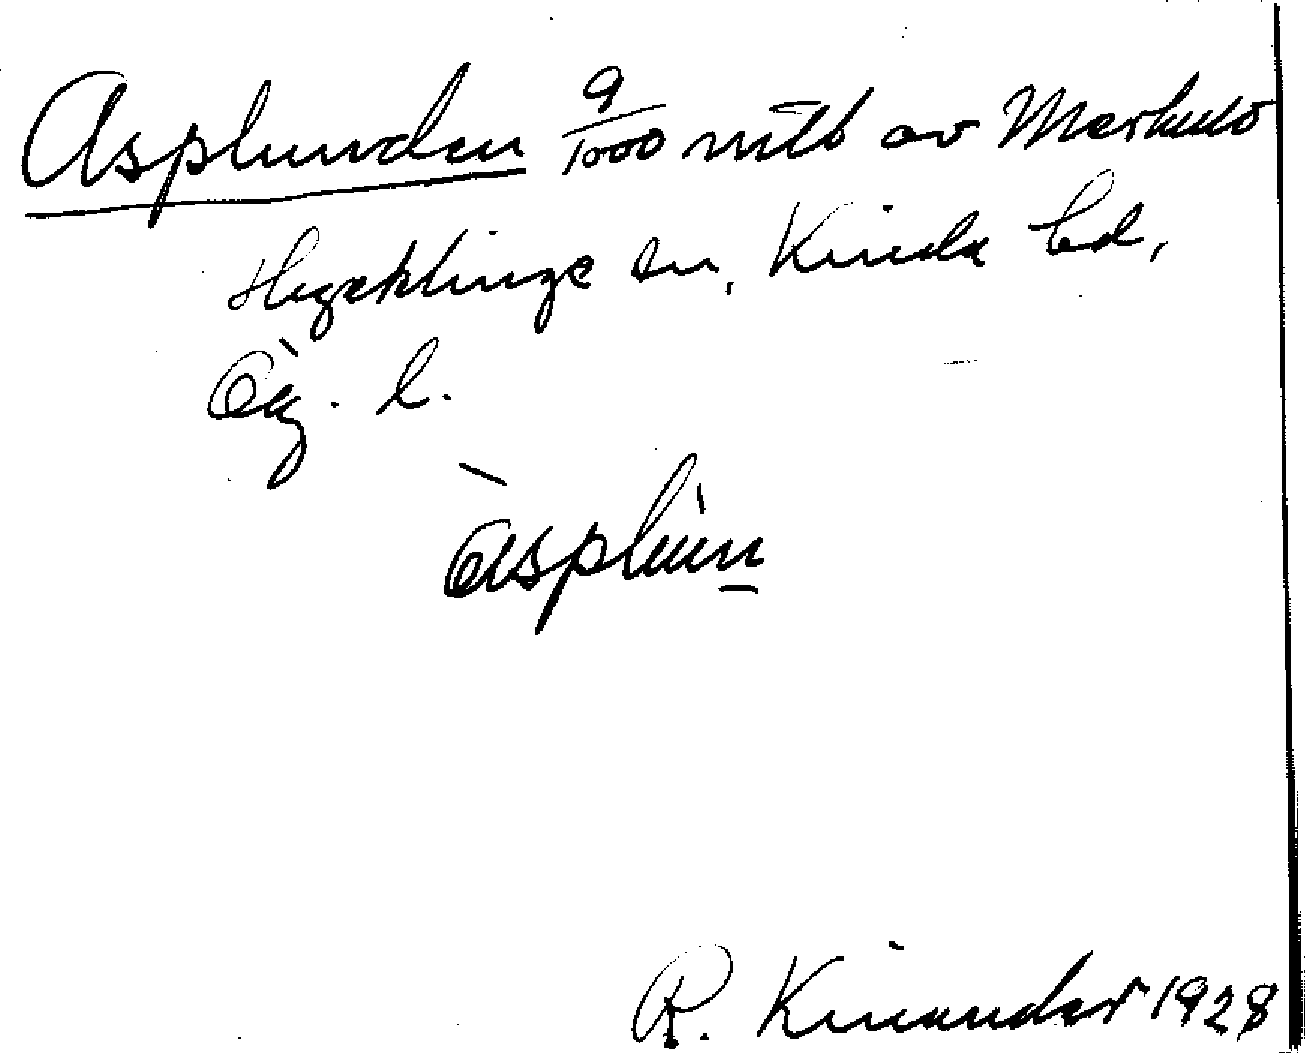 Asplunden 9/1000 mtl av Markulo
Hägeklinge sn, Kinda hd,
Ög. l.
àsplùn
R. Kinander 1928